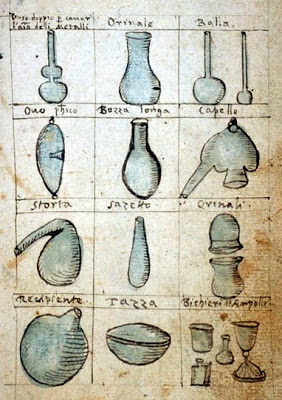 Vaso doppio p cauar
l'aīa deli Metalli
Orinale
Balia.
Ouo fhico
Bozza longa
Capello
Storta
Sazetto.
Orinali.
Recipiente.
Tazza
Bichieri